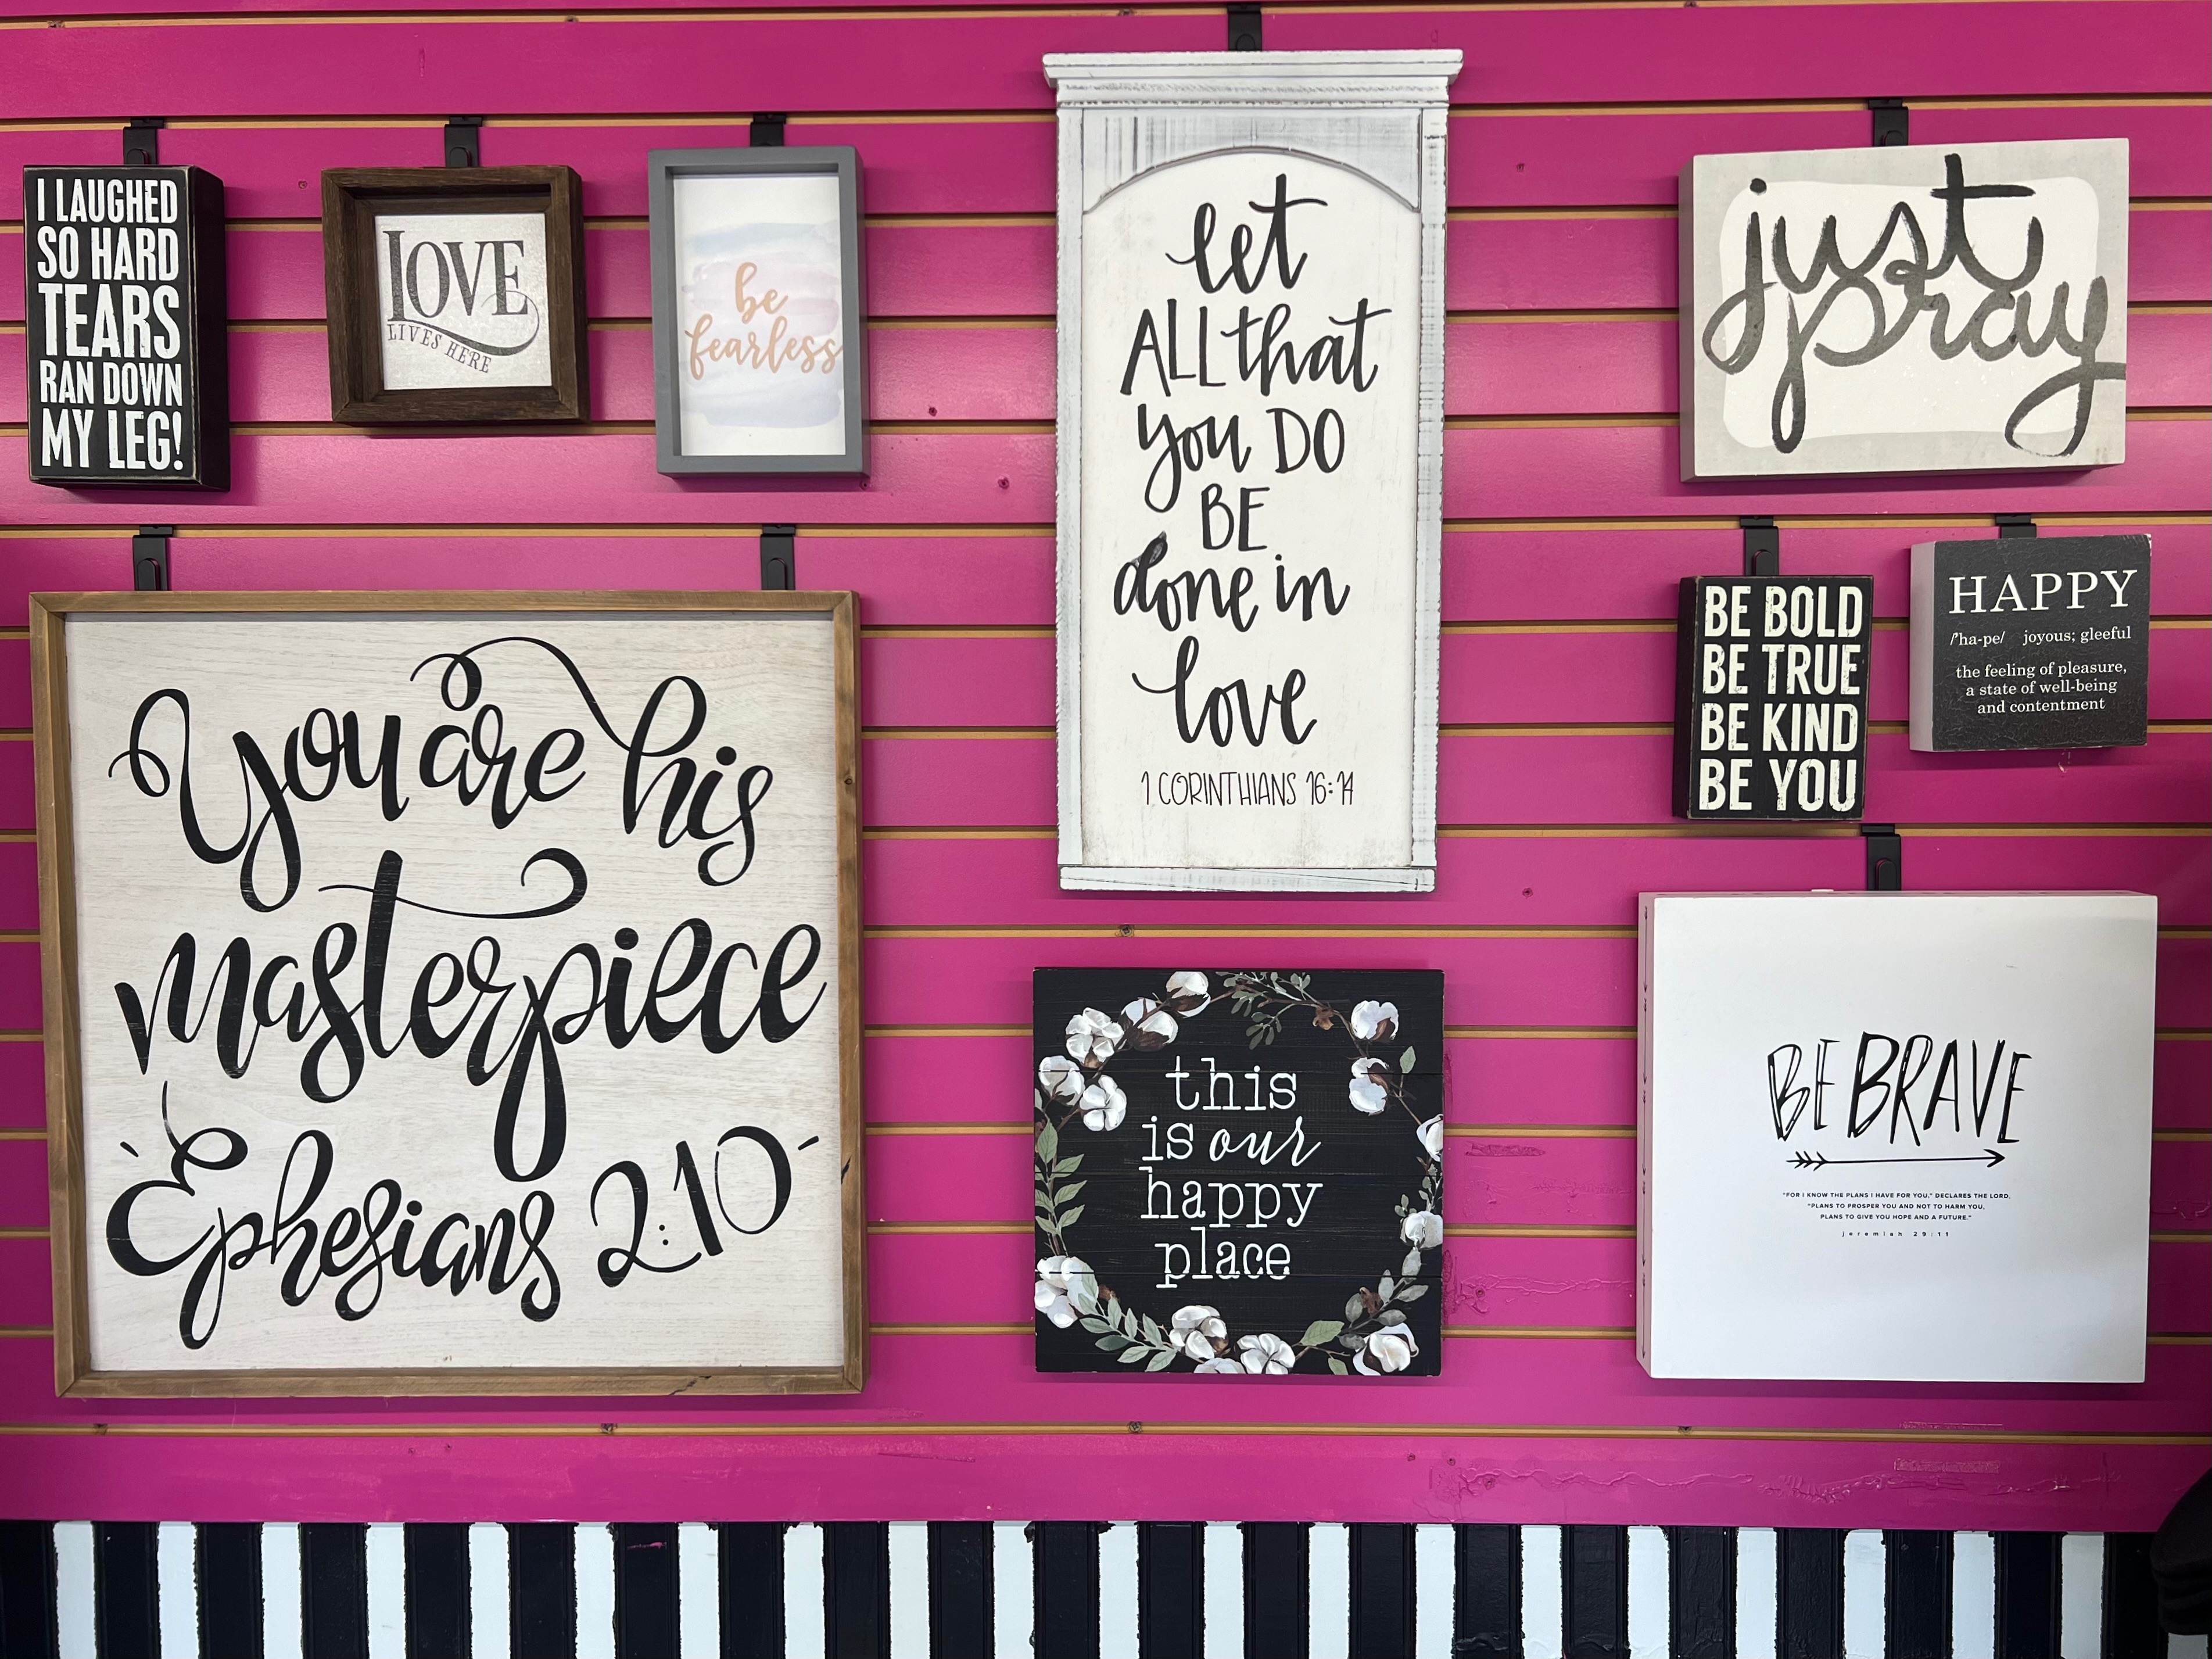 I LAUGHED
SO HARD
TEARS
RAN DOWN
MY LEG!
LOVE
LIVES HERE
be
fearless
let
ALL that
you DO
BE
done in
love
1 CORINTHIANS 16:14
just
pray
BE BOLD
BE TRUE
BE KIND
BE YOU
HAPPY
/'ha-pe/ joyous; gleeful
the feeling of pleasure,
a state of well-being
and contentment
You are his
masterpiece
Ephesians 2:10
this
is our
happy
place
BE BRAVE
"FOR I KNOW THE PLANS I HAVE FOR YOU," DECLARES THE LORD,
"PLANS TO PROSPER YOU AND NOT TO HARM YOU,
PLANS TO GIVE YOU HOPE AND A FUTURE."
jeremiah 29:11